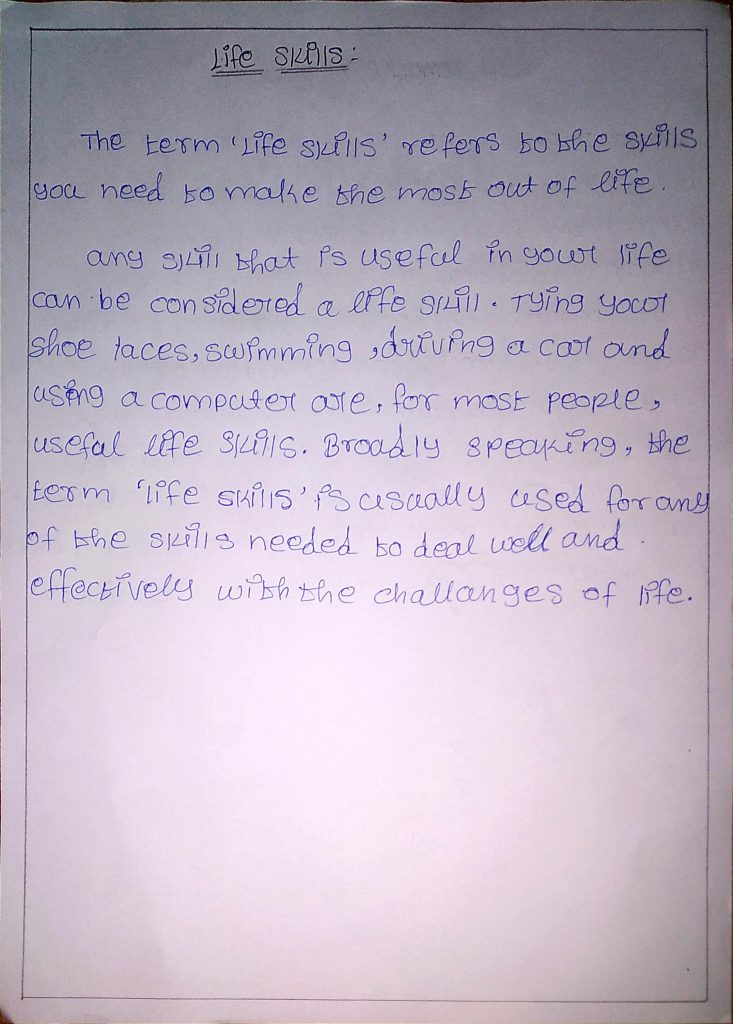 Life Skills:
The term 'Life skills' refers to the skills
you need to make the most out of life.
any skill that is useful in your life
can be considered a life skill. Tying your
shoe laces, swimming, driving a car and
using a computer are, for most people,
useful life skills. Broadly speaking, the
term 'life skills' is usually used for any
of the skills needed to deal well and
effectively with the challanges of life.